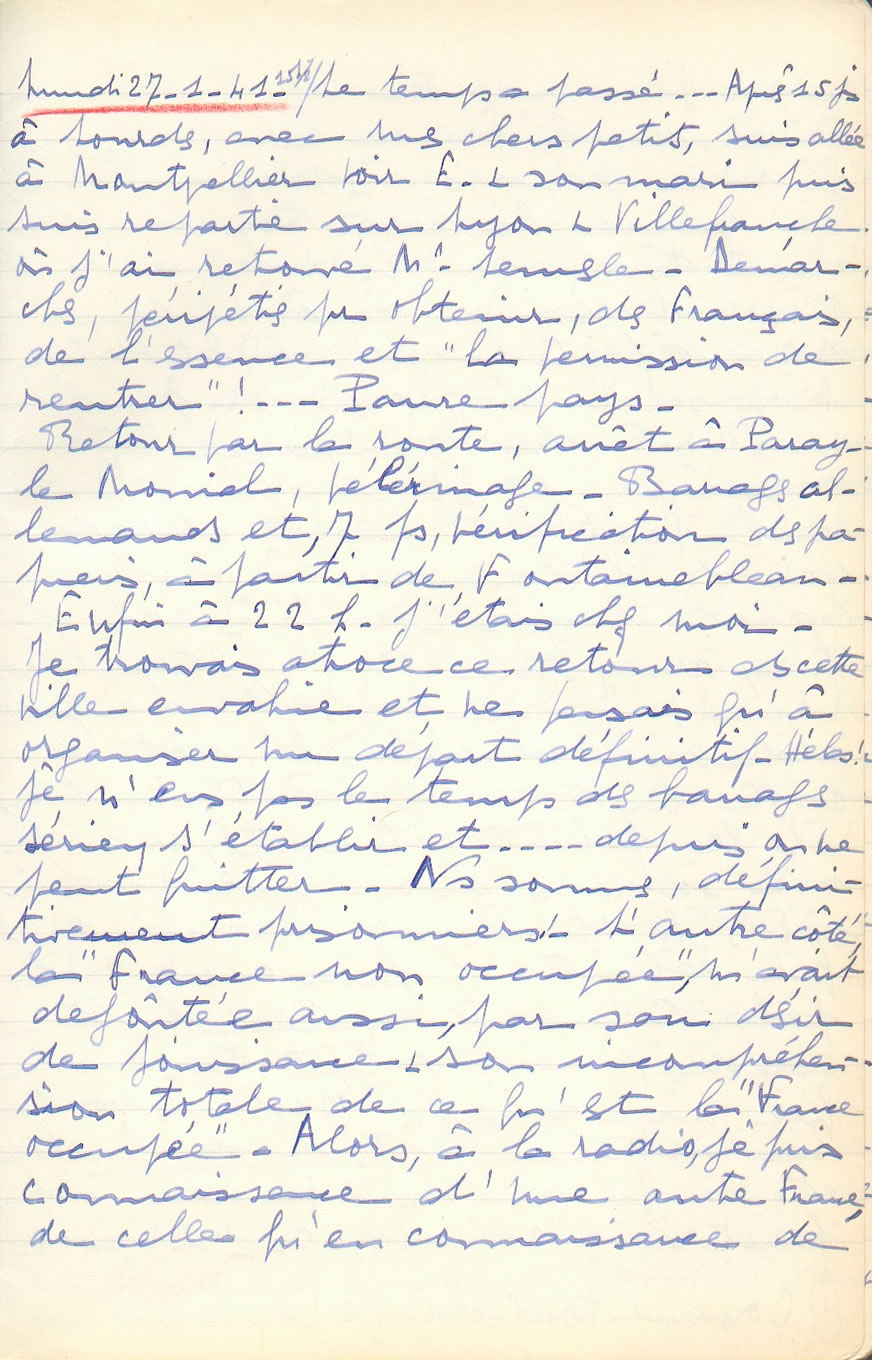 Lundi 27-1-41- 15h1/2/Le temps a passé --- Après 15 js
à Lourds, avec mes chers petits, suis allée
à Montpellier voir E. & son mari puis
suis repartie sur Lyon & Villefranche
où j'ai retrouvé Mr. - Démar-
chs, péripétis pr obtenir, ds Français,
de l'essence et "la permission de
rentrer"! --- Pauvre pays -
Retour par la route, arrêt à Paray-
le Monial, pélérinage - Barrags al-
lemands et, 7 fs, vérification ds pa-
piers, à partir de Fontainebleau -
Enfin à 22 h. j'étais chz moi -
Je trouvais atroce ce retour ds cette
ville envahie et ne pensais qu'à
organiser un départ définitif - Hélas!
Je n'eus pas le temps ds barrags
sériey s'établir et ---- depuis on ne
peut quitter - Ns sommes, défini-
tivement prisonniers! - L'autre côté,
la "France non occupée", m'avait
dégôutée aussi, par son désir
de jouissance & son incompréhen-
sion totale de ce qu'est la "France
occupée" - Alors, à la radio, je pris
connaissance d'une autre France,
de celle qu'en connaissance de